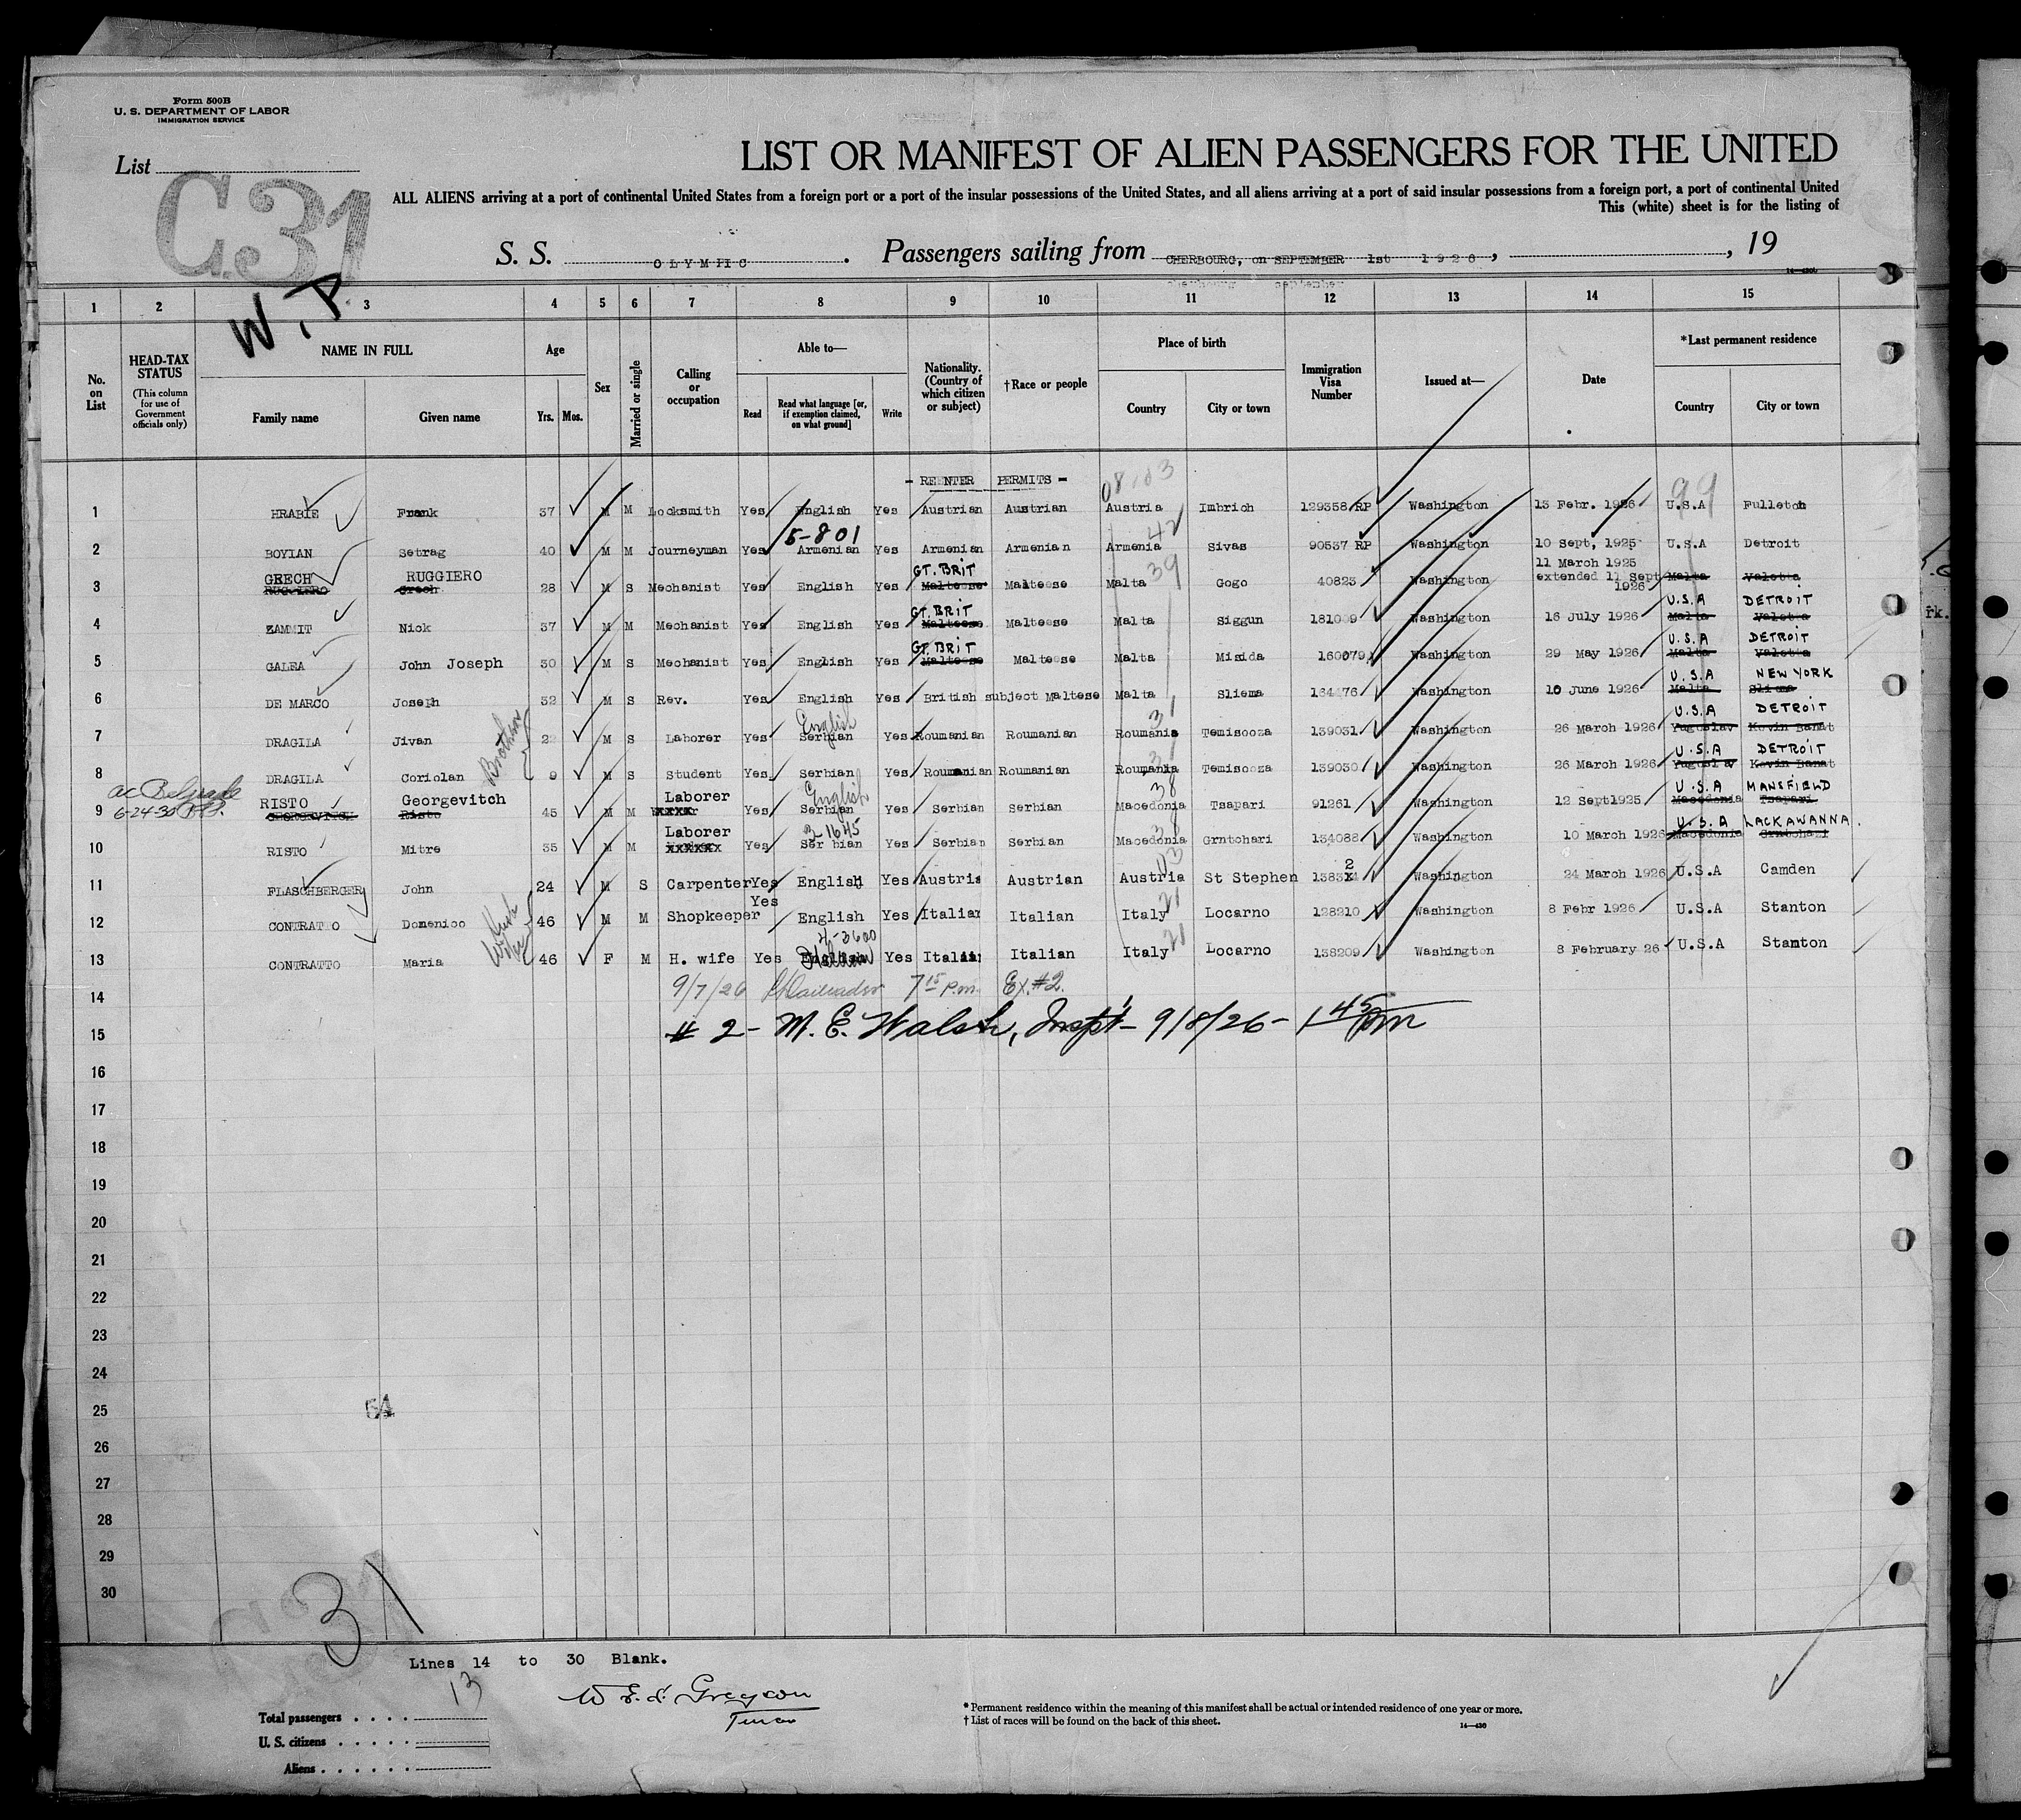 Form 500B
U. S. DEPARTMENT OF LABOR
IMMIGRATION SERVICE
List
C31
W.P
LIST OR MANIFEST OF ALIEN PASSENGERS FOR THE UNITED
ALL ALIENS arriving at a port of continental United States from a foreign port or a port of the insular possessions of the United States, and all aliens arriving at a port of said insular possessions from a foreign port, a port of continental United
This (white) sheet is for the listing of
S. S. OLYMPIC. Passengers sailing from CHERBOURG, on SEPTEMBER 1st 1926, , 19
1 2 3 4 5 6 7 8 9 10 11 12 13 14 15
No. on List
HEAD-TAX STATUS (This column for use of Government officials only)
NAME IN FULL Family name Given name
Age Yrs. Mos.
Sex
Married or single
Calling or occupation
Able to— Read Read what language [or, if exemption claimed, on what ground] Write
Nationality. (Country of which citizen or subject)
†Race or people
Place of birth Country City or town
Immigration Visa Number
Issued at—
Date
*Last permanent residence Country City or town
- REENTER PERMITS -
08.03 99
1 HRABIE Frank 37 M M Locksmith Yes English Yes Austrian Austrian Austria Imbrich 129358/RP Washington 13 Febr. 1926 U.S.A Fulleton
5-801 42
2 BOYIAN Setrag 40 M M Journeyman Yes Armenian Yes Armenian Armenian Armenia Sivas 90537 RP Washington 10 Sept, 1925 U.S.A Detroit
GRECH RUGGIERO GT. BRIT 39 11 March 1925
3 RUGGIERO Grech 28 M S Mechanist Yes English Yes Malteese Malteese Malta Gogo 40823 Washington extended 11 Sept 1926 Malta Valetta
GT. BRIT U.S.A DETROIT
4 ZAMMIT Nick 37 M M Mechanist Yes English Yes Malteese Malteese Malta Siggun 181009 Washington 16 July 1926 Malta Valetta
GT. BRIT U.S.A DETROIT
5 GALEA John Joseph 30 M S Mechanist Yes English Yes Malteese Malteese Malta Misida 160079 Washington 29 May 1926 Malta Valetta
U.S.A NEW YORK
6 DE MARCO Joseph 32 M S Rev. Yes English Yes British subject Maltese Malta Sliema 164476 Washington 10 June 1926 Malta Sliema
English 31 U.S.A DETROIT
7 DRAGILA Jivan 22 M S Laborer Yes Serbian Yes Roumanian Roumanian Roumania Temisooza 139031 Washington 26 March 1926 Yugoslav Kevin Banat
Brothers U.S.A DETROIT
8 DRAGILA Coriolan 9 M S Student Yes Serbian Yes Roumanian Roumanian Roumania Temisooza 139030 Washington 26 March 1926 Yugoslav Kevin Banat
RISTO Georgevitch Laborer English 38 U.S.A MANSFIELD
9 6-24-30 GEORGEVITCH Risto 45 M M Yes Serbian Yes Serbian Serbian Macedonia Tsapari 91261 Washington 12 Sept1925 Macedonia Tsapari
Laborer 2-1645 U.S.A LACKAWANNA
10 RISTO Mitre 35 M M xxxxxx Yes Serbian Yes Serbian Serbian Macedonia Grntchari 134088 Washington 10 March 1926 Macedonia Grntchari
03 2
11 FLASCHBERGER John 24 M S Carpenter Yes English Yes Austria Austrian Austria St Stephen Washington 24 March 1926 U.S.A Camden
12 CONTRATTO Domenico 46 M M Shopkeeper Yes English Yes Italian Italian Italy 21 Locarno 128210 Washington 8 Febr 1926 U.S.A Stanton
4-3600
13 CONTRATTO Maria 46 F M H. wife Yes English Italian Yes Italian Italian Italy 21 Locarno 138209 Washington 8 February 26 U.S.A Stanton
14 9/7/26 7 15 P.m. Ex. #2.
15 # 2 - M. E. Walsh, Inspt - 9/8/26 - 1 45 pm
16
17
18
19
20
21
22
23
24
25
26
27
28
29
30
54
31
Lines 14 to 30 Blank.
13
Total passengers
U. S. citizens
Aliens
*Permanent residence within the meaning of this manifest shall be actual or intended residence of one year or more.
†List of races will be found on the back of this sheet.
14—430